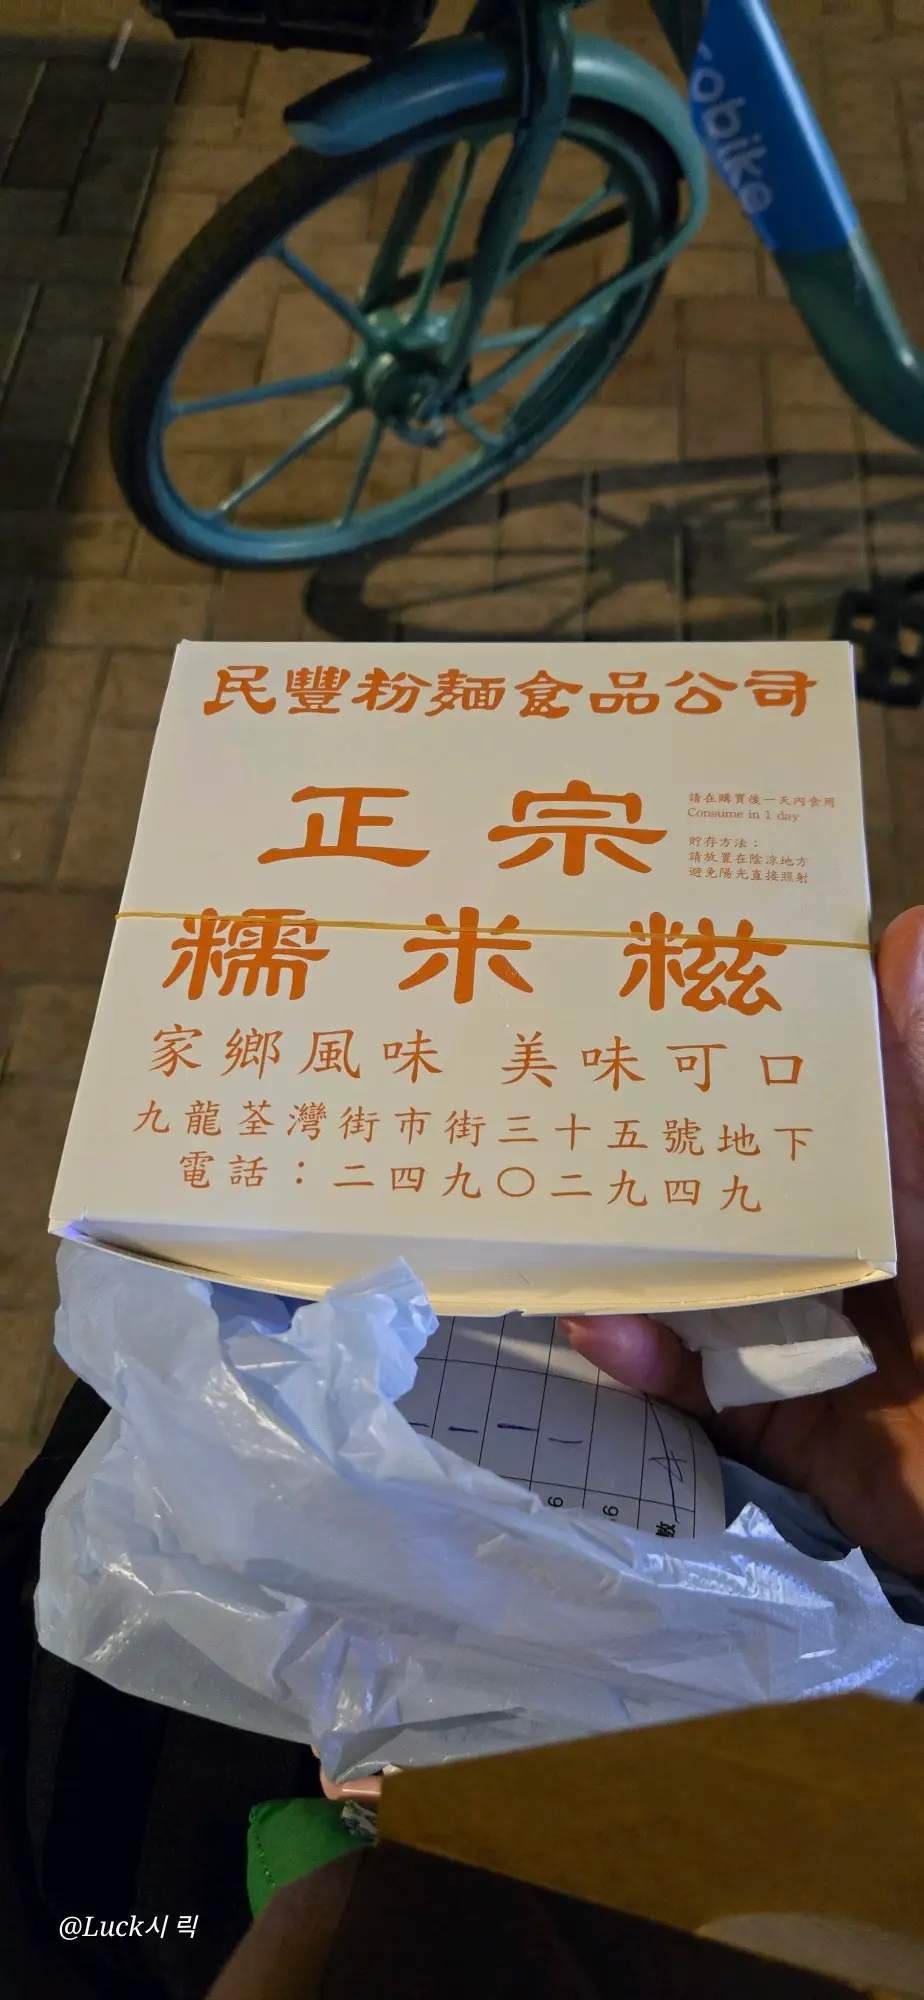 obike
民豐粉麵食品公司
正宗
請在購買後一天內食用
Consume in 1 day
貯存方法：
請放置在陰涼地方
避免陽光直接照射
糯米糍
家鄉風味 美味可口
九龍荃灣街市街三十五號地下
電話：二四九〇二九四九
數
@Luck시 릭